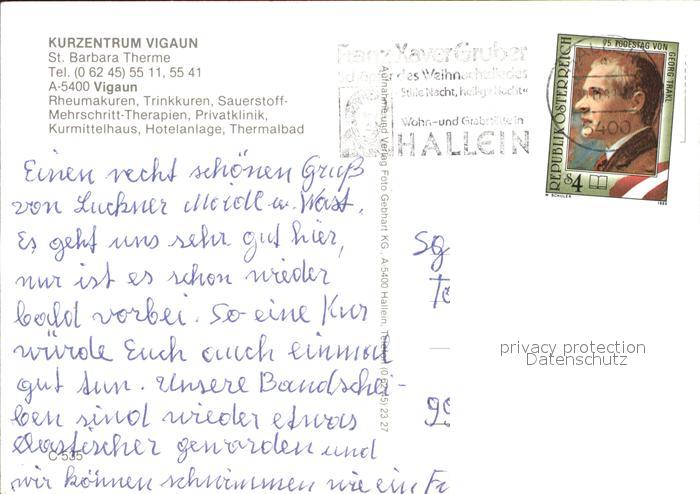 KURZENTRUM VIGAUN
St. Barbara Therme
Tel. (0 62 45) 55 11, 55 41
A-5400 Vigaun
Rheumakuren, Trinkkuren, Sauerstoff-
Mehrschritt-Therapien, Privatklinik,
Kurmittelhaus, Hotelanlage, Thermalbad
Franz Xaver Gruber
Schöpfer des Weihnachtsliedes
"Stille Nacht, heilige Nacht"
Wohn- und Grabstätte in
HALLEIN
75. TODESTAG VON
GEORG TRAKL
REPUBLIK ÖSTERREICH
S4
5400
Einen recht schönen Gruß
von Luckner Moidl u. Wast.
Es geht uns sehr gut hier,
nur ist es schon wieder
bald vorbei. So eine Kur
würde Euch auch einmal
gut tun. Unsere Bandschei-
ben sind wieder etwas
elastischer geworden und
wir können schwimmen wie ein
Aufnahme und Verlag Foto Gebhart KG., A-5400 Hallein, Telefon (0 62 45) 23 27
C 535
privacy protection
Datenschutz